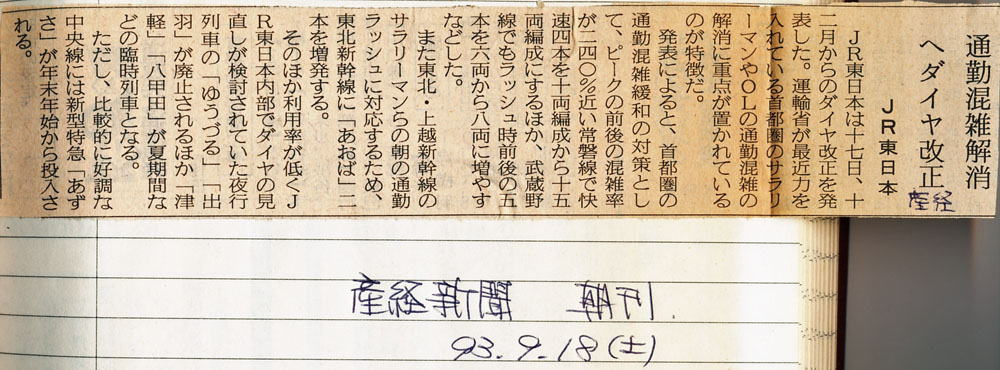 通勤混雑解消
へダイヤ改正
JR東日本
産経
JR東日本は十七日、十
二月からのダイヤ改正を発
表した。運輸省が最近力を
入れている首都圏のサラリ
ーマンやOLの通勤混雑の
解消に重点が置かれている
のが特徴だ。
発表によると、首都圏の
通勤混雑緩和の対策とし
て、ピークの前後の混雑率
が二四〇%近い常磐線で快
速四本を十両編成から十五
両編成にするほか、武蔵野
線でもラッシュ時前後の五
本を六両から八両に増やす
などした。
また東北・上越新幹線の
サラリーマンらの朝の通勤
ラッシュに対応するため、
東北新幹線に「あおば」二
本を増発する。
そのほか利用率が低くJ
R東日本内部でダイヤの見
直しが検討されていた夜行
列車の「ゆうづる」「出
羽」が廃止されるほか「津
軽」「八甲田」が夏期間な
どの臨時列車となる。
ただし、比較的に好調な
中央線には新型特急「あず
さ」が年末年始から投入さ
れる。
産経新聞 朝刊.
93.9.18(土)